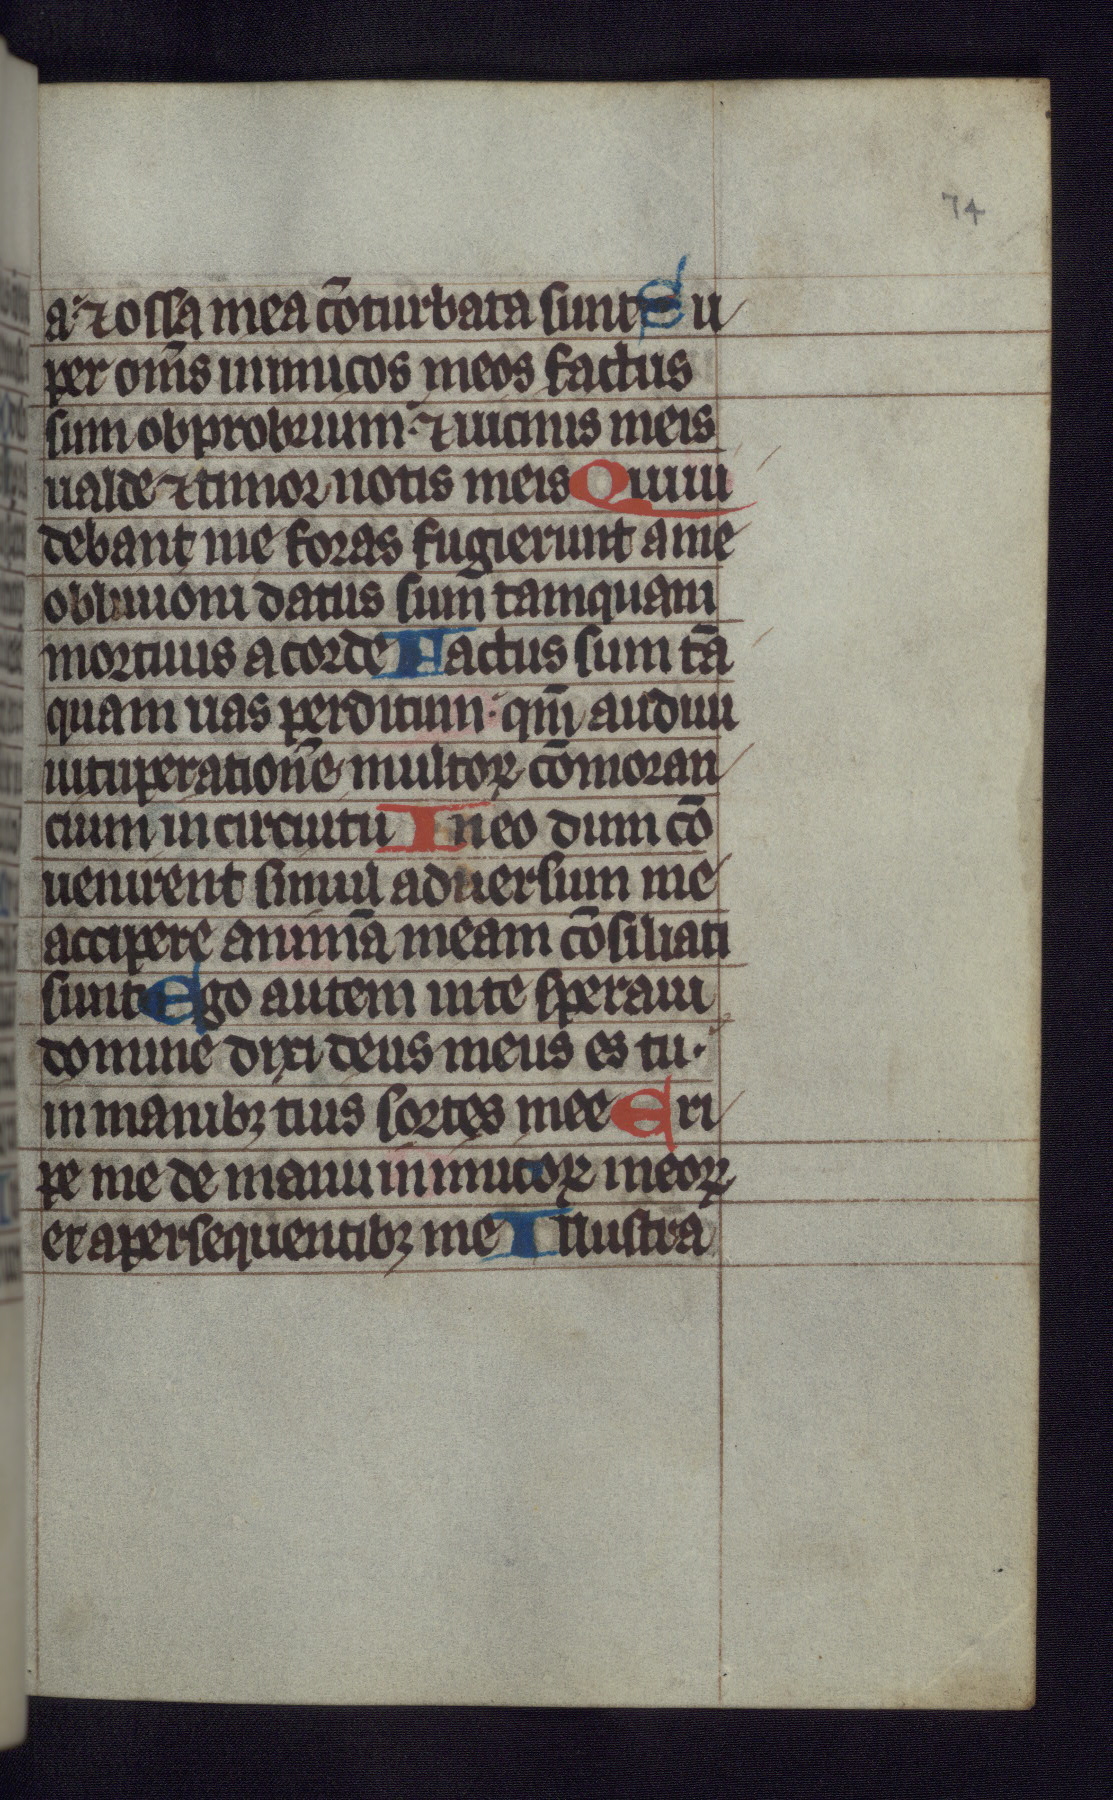 74
a· ⁊ ossa mea c̄oturbata sunt Su
per om̄s inimicos meos factus
sum obprobrium· ⁊ uicinis meis
ualde ⁊ timor notis meis Qui ui
debant me foras fugierunt a me
obliuioni datus sum tamquam
mortuus a corde Factus sum tā
quam uas perditum· qm̄ audiui
uituperation̄e multoꝝ cōmoran
cium in circuitu In eo dum cō
uenirent simul aduersum me
accipere animā meam cōsiliati
sunt Ego autem in te speraui
domine dixi deus meus es tu·
in manibꝫ tuis sortes mee Eri
pe me de manu inimicoꝝ meoꝝ
et a persequentibꝫ me Illustra